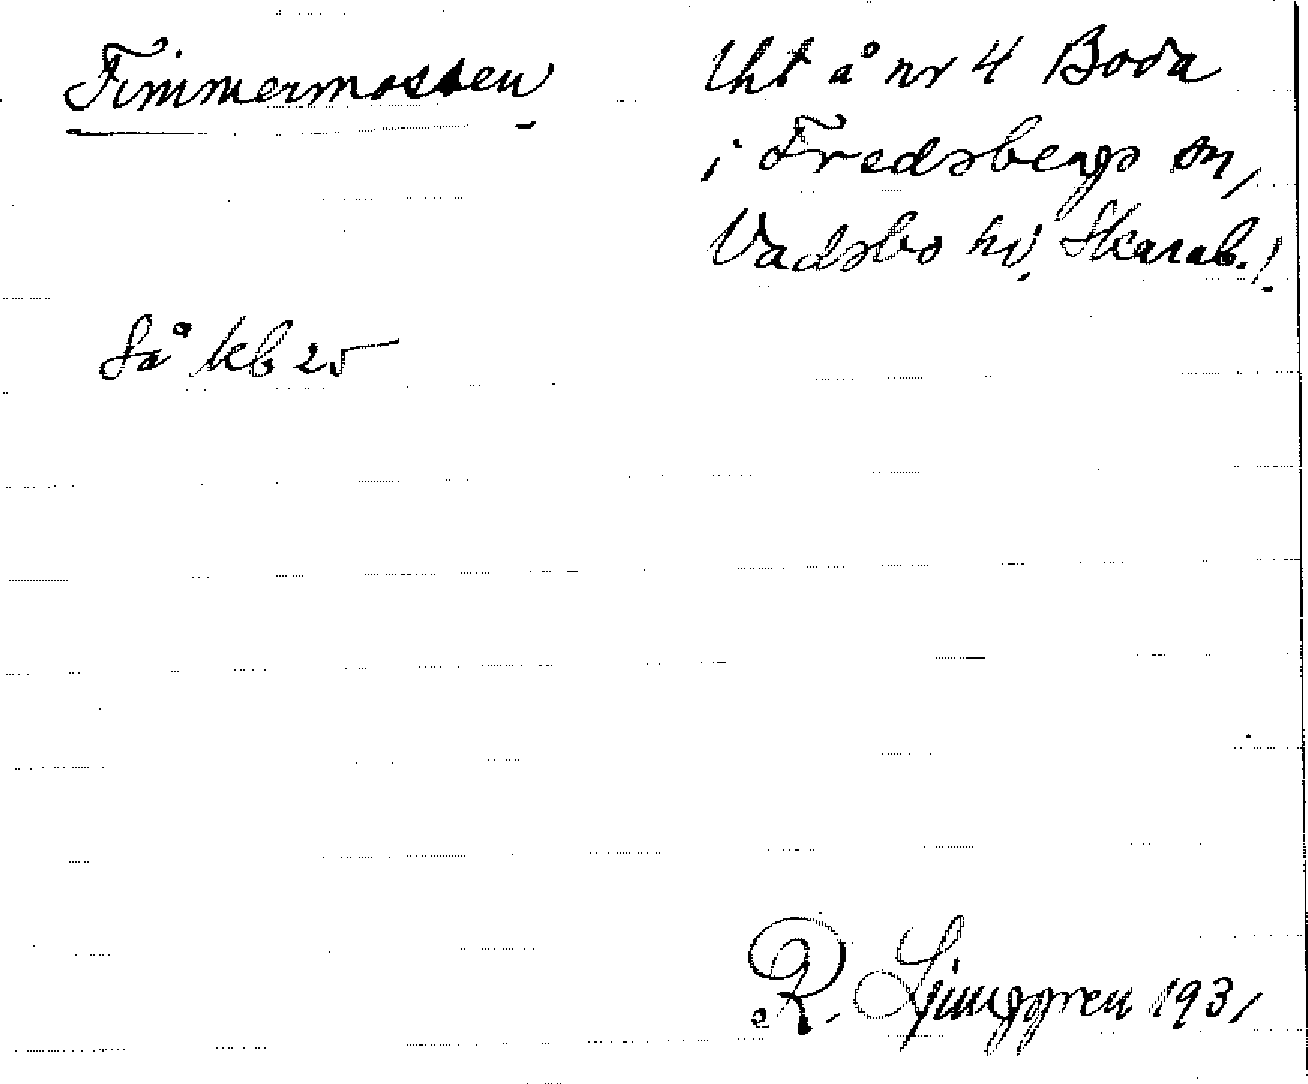 Timmermossen
Uht å nr 4 Boda
i Fredsbergs sn,
Vadsbo hd, Skarab. l.
Så kb 25
R. Ljunggren 1931